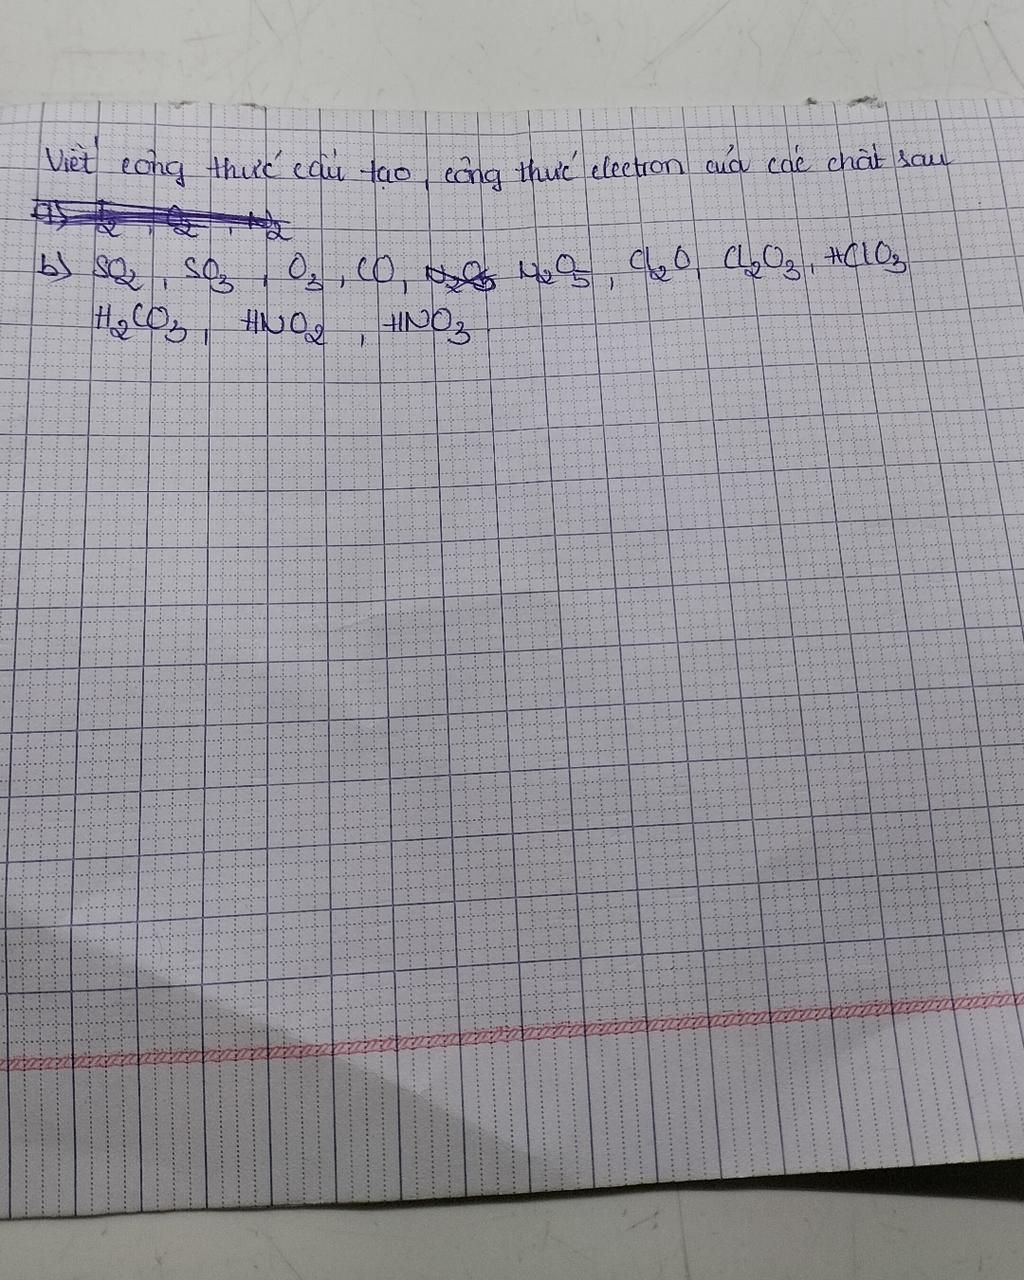 Viết công thức cấu tạo, công thức electron của các chất sau
b) SO₂, SO₃, O₃, CO, N₂O₅, Cl₂O, Cl₂O₃, HClO₃
H₂CO₃, HNO₂, HNO₃